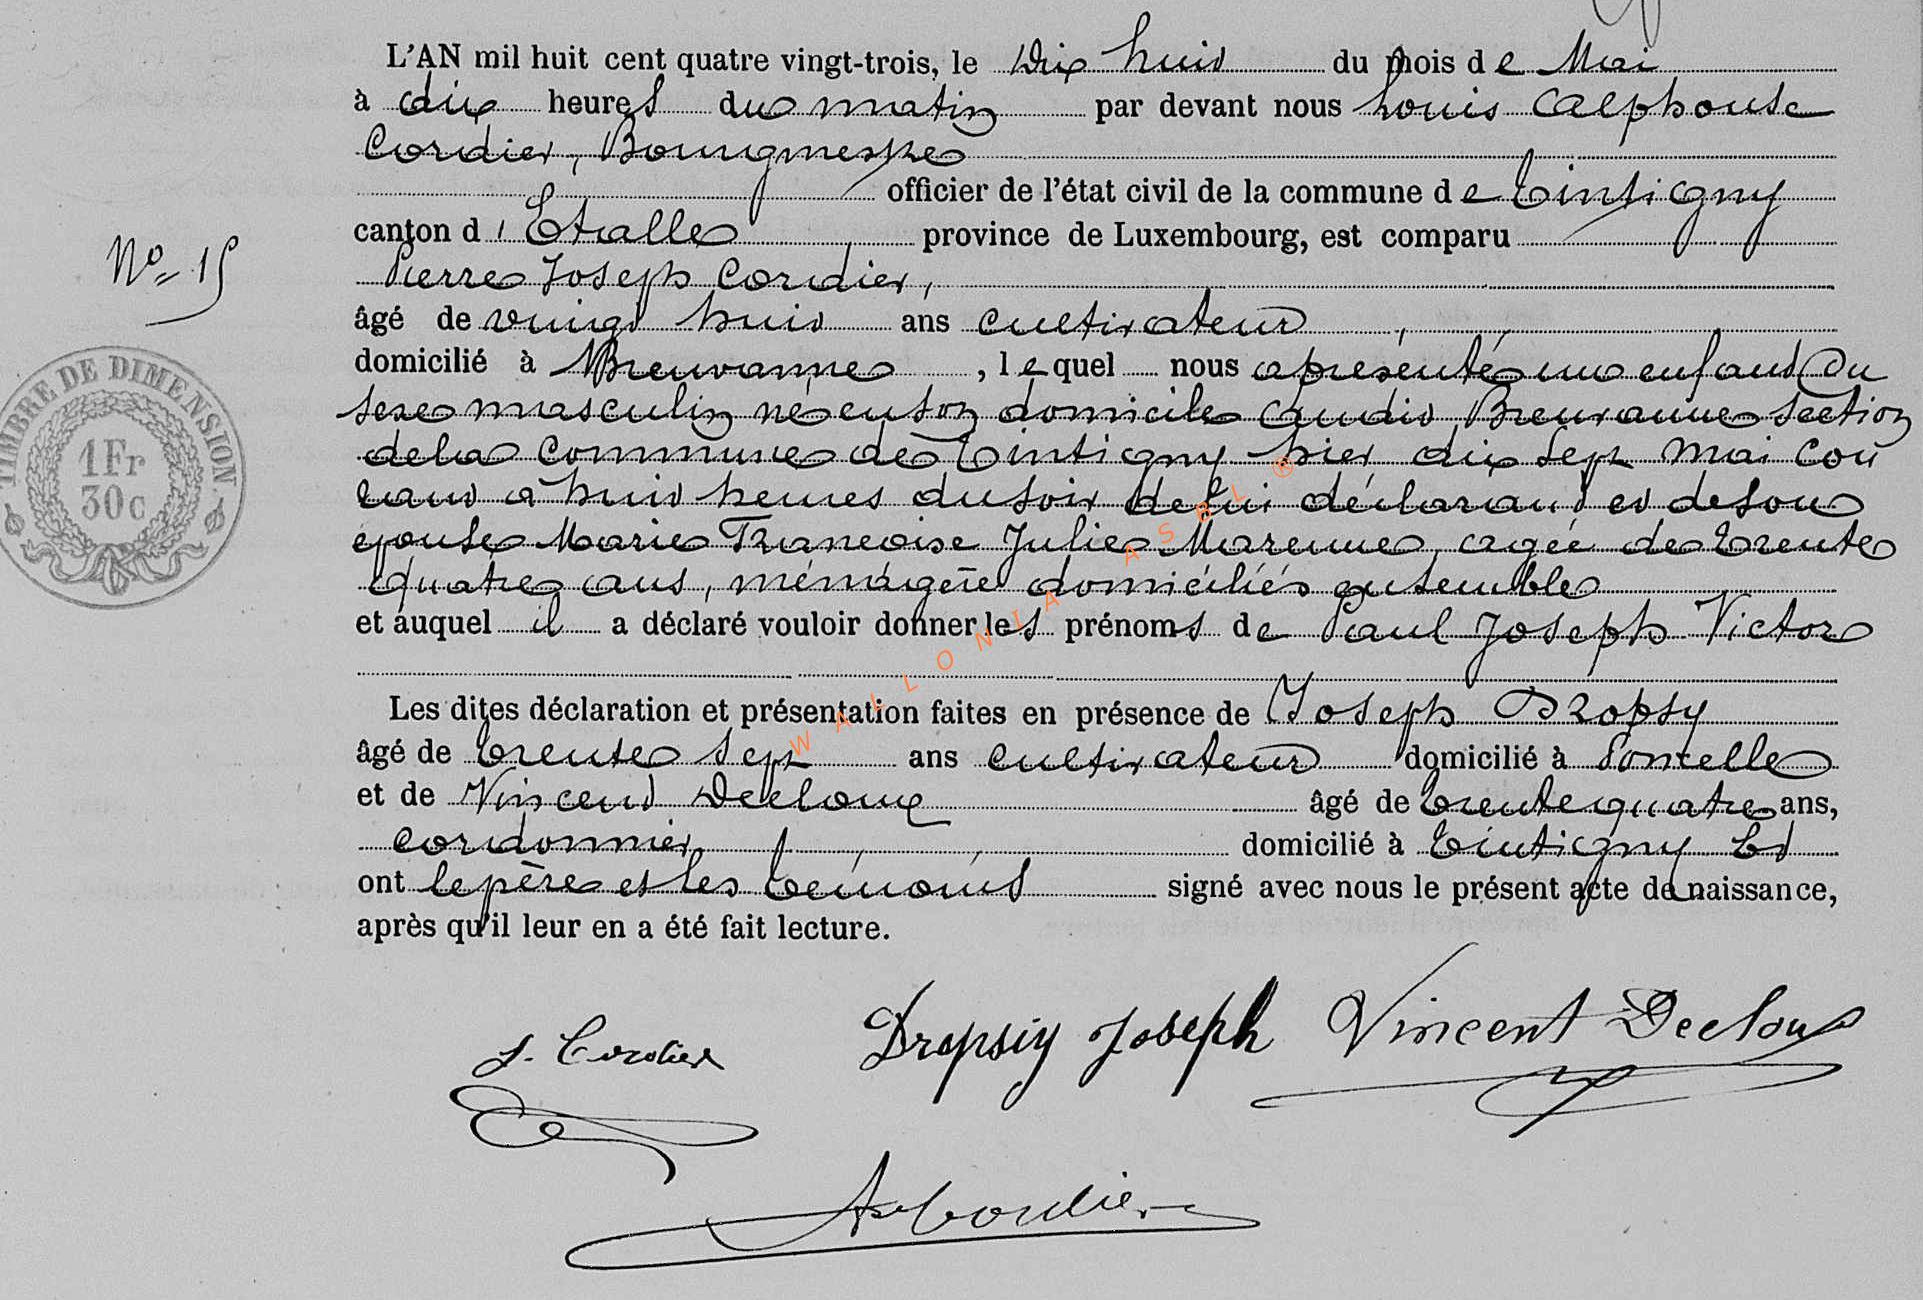 L'AN mil huit cent quatre vingt-trois, le Dix huit du mois de Mai
à dix heures du matin par devant nous Louis Alphonse
Cordier, Bourgmestre
officier de l'état civil de la commune de Tintigny
canton d'Etalle province de Luxembourg, est comparu
N° 15
Pierre Joseph Cordier,
âgé de vingt huit ans cultivateur
domicilié à Breuvanne, lequel nous a présenté un enfant du
sexe masculin né en son domicile audit Breuvanne section
de la commune de Tintigny hier dix sept mai cou
rant à huit heures du soir de lui déclarant et de son
épouse Marie Françoise Julie Marenne, agée de trente
quatre ans, ménagère domiciliés ensemble
et auquel il a déclaré vouloir donner les prénoms de Paul Joseph Victor
Les dites déclaration et présentation faites en présence de Joseph Dropsy
âgé de trente sept ans cultivateur domicilié à Poncelle
et de Vincent Decloux âgé de trente quatre ans,
cordonnier domicilié à Tintigny Et
ont le père et les témoins signé avec nous le présent acte de naissance,
après qu'il leur en a été fait lecture.
TIMBRE DE DIMENSION
1Fr
30c
WALLONIA ASBL ®
J. Cordier Dropsiy Joseph Vincent Decloux
A Cordier